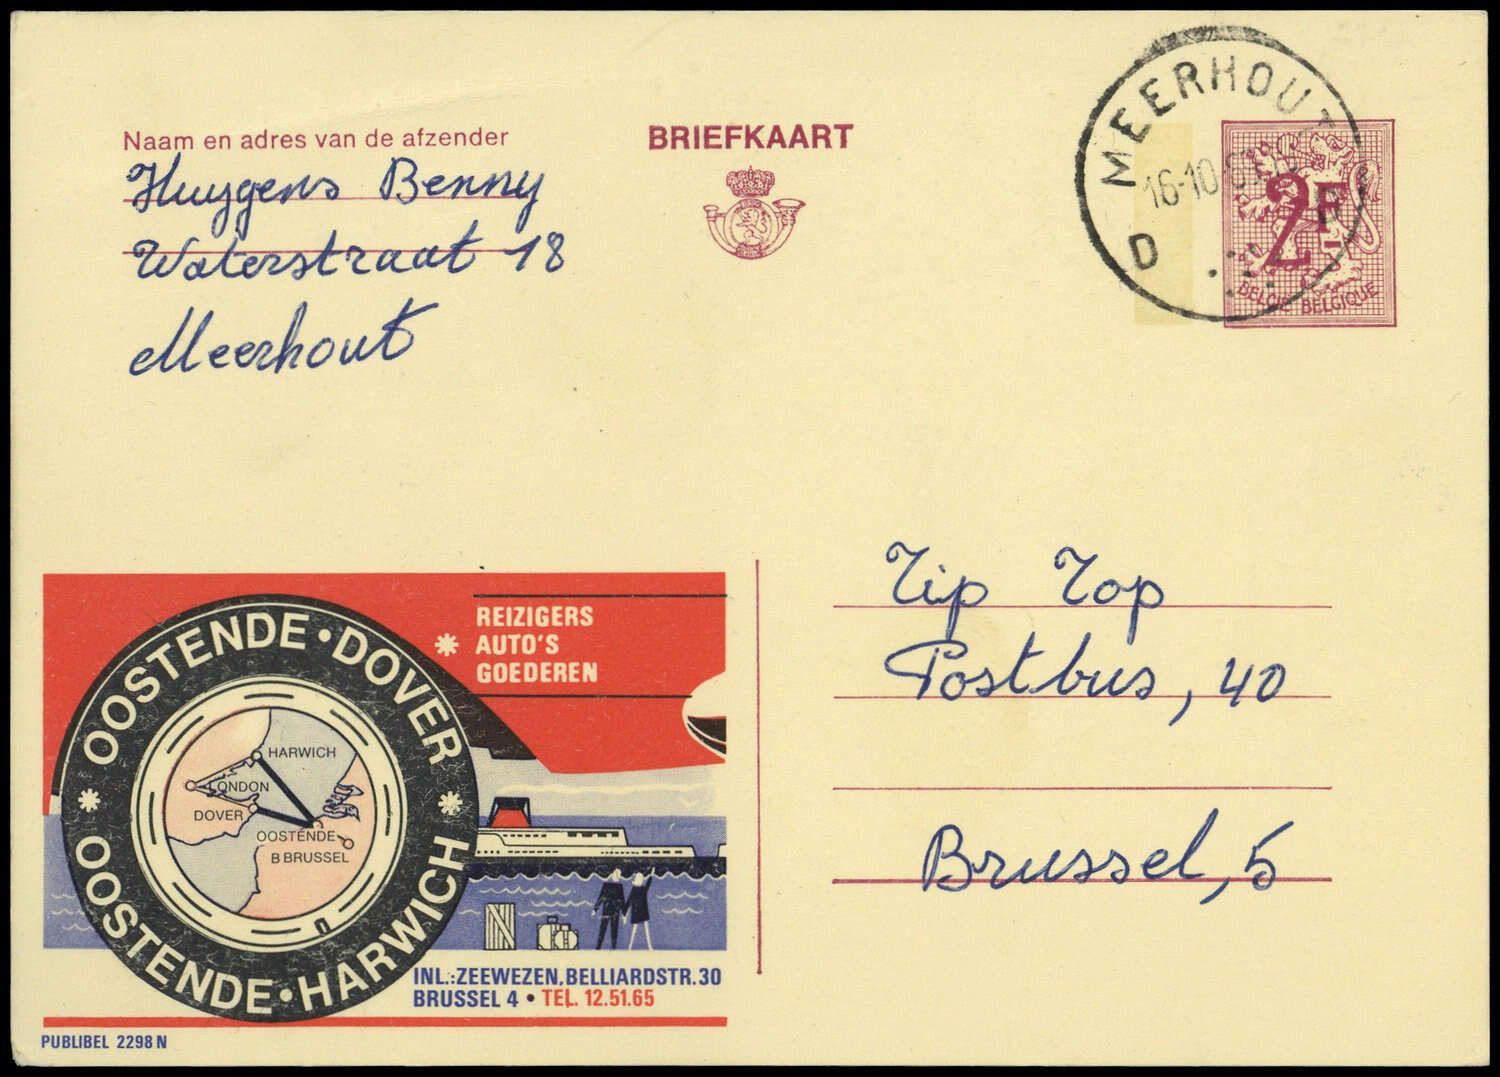 Naam en adres van de afzender
Huygens Benny
Waterstraat 18
Meerhout
BRIEFKAART
MEERHOUT
16-10
D
2F
BELGIE BELGIQUE
Tip Top
Postbus, 40
Brussel, 5
REIZIGERS
* AUTO'S
GOEDEREN
* OOSTENDE • DOVER *
OOSTENDE • HARWICH
HARWICH
LONDON
DOVER
OOSTENDE
B BRUSSEL
INL.: ZEEWEZEN, BELLIARDSTR. 30
BRUSSEL 4 • TEL. 12.51.65
PUBLIBEL 2298 N